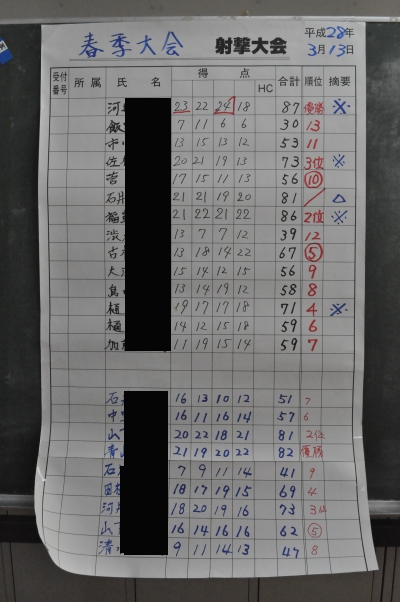 春季大会 射撃大会 平成28年
3月13日
受付番号 所属 氏名 得点 HC 合計 順位 摘要
河 23 22 24 18 87 優勝 ※
飯 7 11 6 6 30 13
13 15 13 12 53 11
佐 20 21 19 13 73 3位 ※
17 15 11 13 56 10
石井 21 21 19 20 81 / △
稲 21 22 21 22 86 2位 ※
渋 13 7 7 12 39 12
古 13 18 14 22 67 5
大 15 14 12 15 56 9
島 13 14 19 12 58 8
樋 19 17 17 18 71 4 ※
樋 14 12 15 18 59 6
加 11 19 15 14 59 7
石 16 13 10 12 51 7
中 16 11 16 14 57 6
山 20 22 18 21 81 2位
青山 21 19 20 22 82 優勝
石 7 9 11 14 41 9
田 18 17 19 15 69 4
河 18 20 19 16 73 3位
山 16 14 16 16 62 5
清 9 11 14 13 47 8